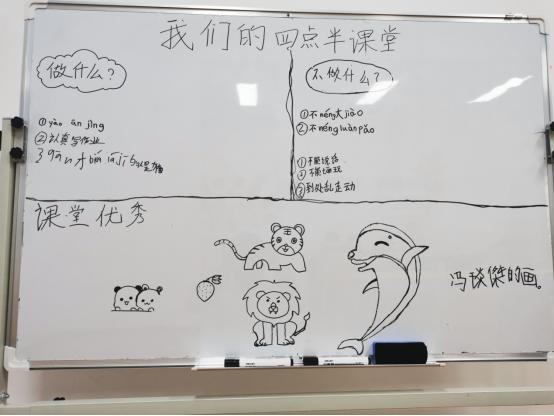 我们的四点半课堂
做什么?
①yào ān jìng
②认真写作业
不做什么?
①不néng大jiào
②不néngluànpǎo
①不能说话
②不能玩
③到处乱走动
课堂优秀
冯琰傑的画。